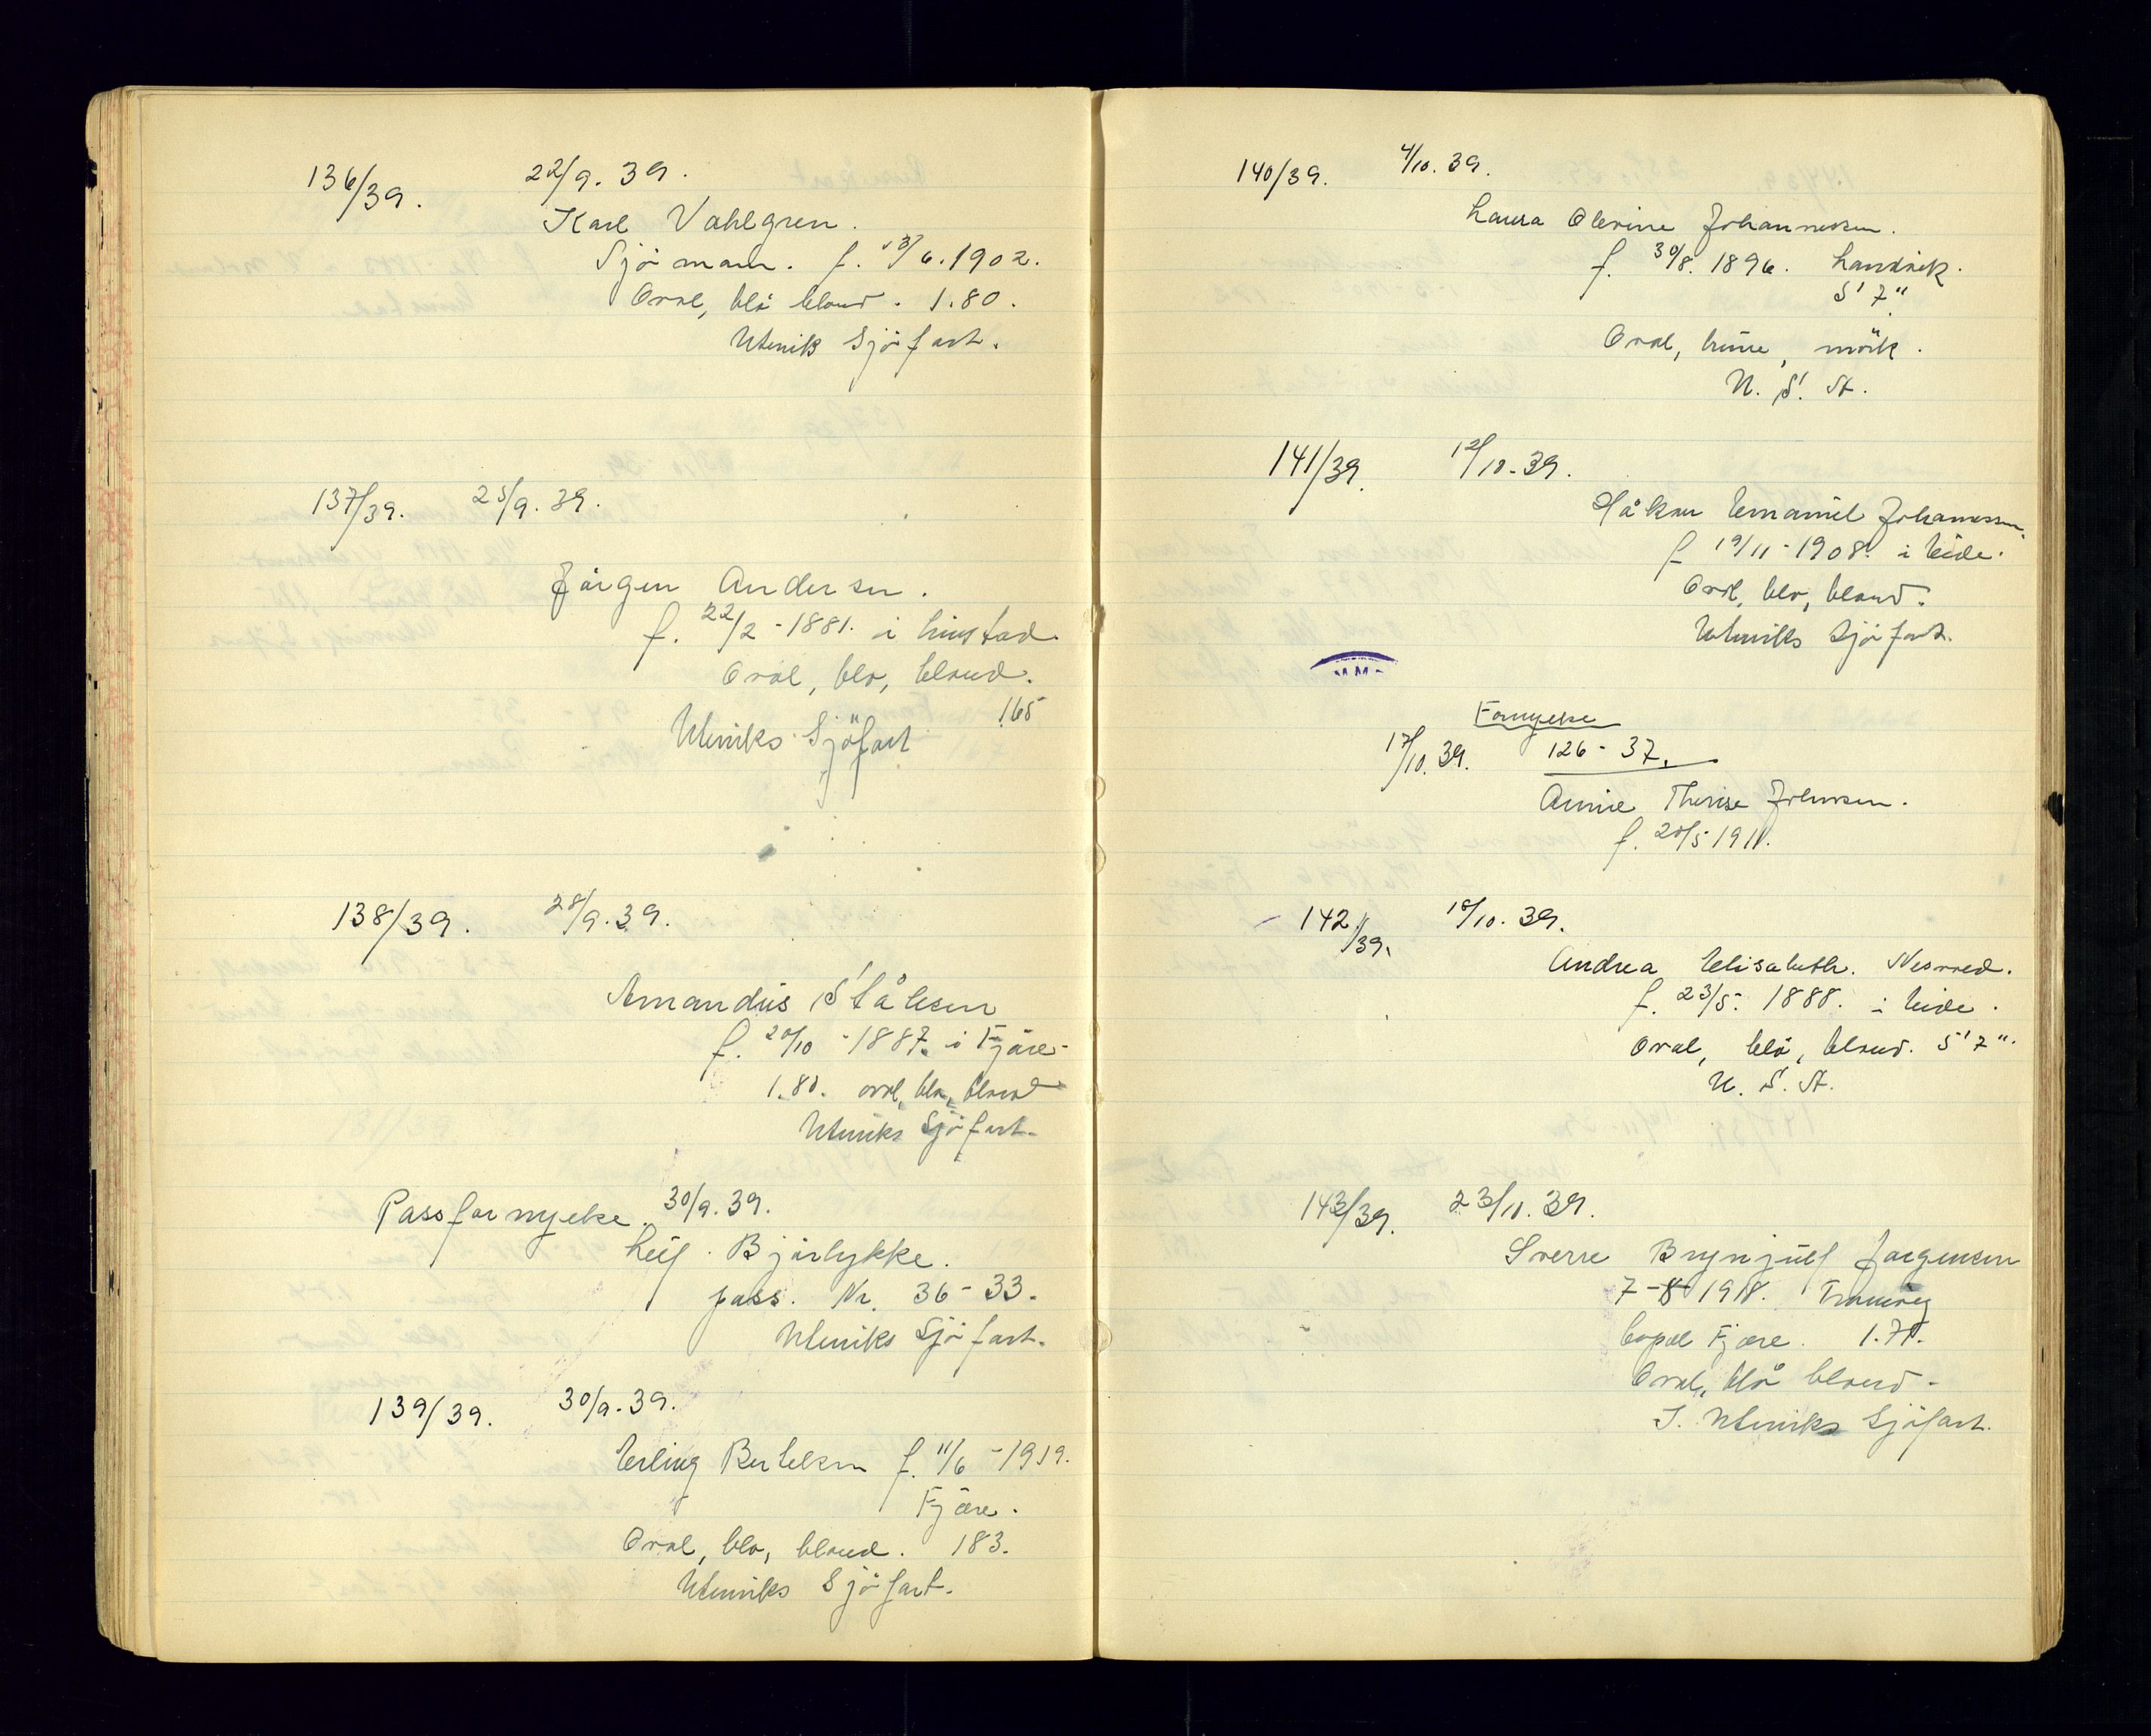 136/39. 22/9. 39.
Karl Vahlgren.
Sjømann. f. 13/6. 1902.
Oval, blå blond. 1.80.
Utenriks Sjøfart.
137/39. 25/9. 39.
Jørgen Andersen.
f. 22/2 - 1881. i
Oval, blå, blond.
165
Utenriks Sjöfart
138/39. 28/9. 39.
Amandus Ståhlesen
f. 20/10 - 1887. i Fjære
1.80. oval, blå, blond
Utenriks Sjøfart.
Passfornyelse. 30/9. 39.
Leif Bjørlykke.
pass. Nr. 36 - 33.
Utenriks Sjøfart.
139/39. 30/9. 39.
Erling Bertelsen f. 11/6 - 1919.
Fjære.
Oval, blå, blond. 183.
Utenriks Sjøfart.
140/39. 4/10. 39.
Laura Olevine Johannessen.
f. 30/8. 1896. Landvik.
5' 7"
Oval, brune, mörk.
U. S. A.
141/39. 12/10. 39.
Håkon Emanuel Johannessen.
f 19/11 - 1908. i Eide.
Oval, blå, blond.
Utenriks Sjøfart.
Fornyelse
17/10. 39. 126 - 37.
Annie Therese Johnsen.
f. 20/5 1911.
142/39. 18/10. 39.
Andrea Elisabeth Nesved.
f. 23/5. 1888. i Eide.
Oval, blå, blond. 5' 7".
U. S. A.
143/39. 23/10. 39.
Sverre Brynjulf Jørgensen
7 - 8 1918.
Fjære. 1.71.
Oval, blå blond -
I. Utenriks Sjøfart.